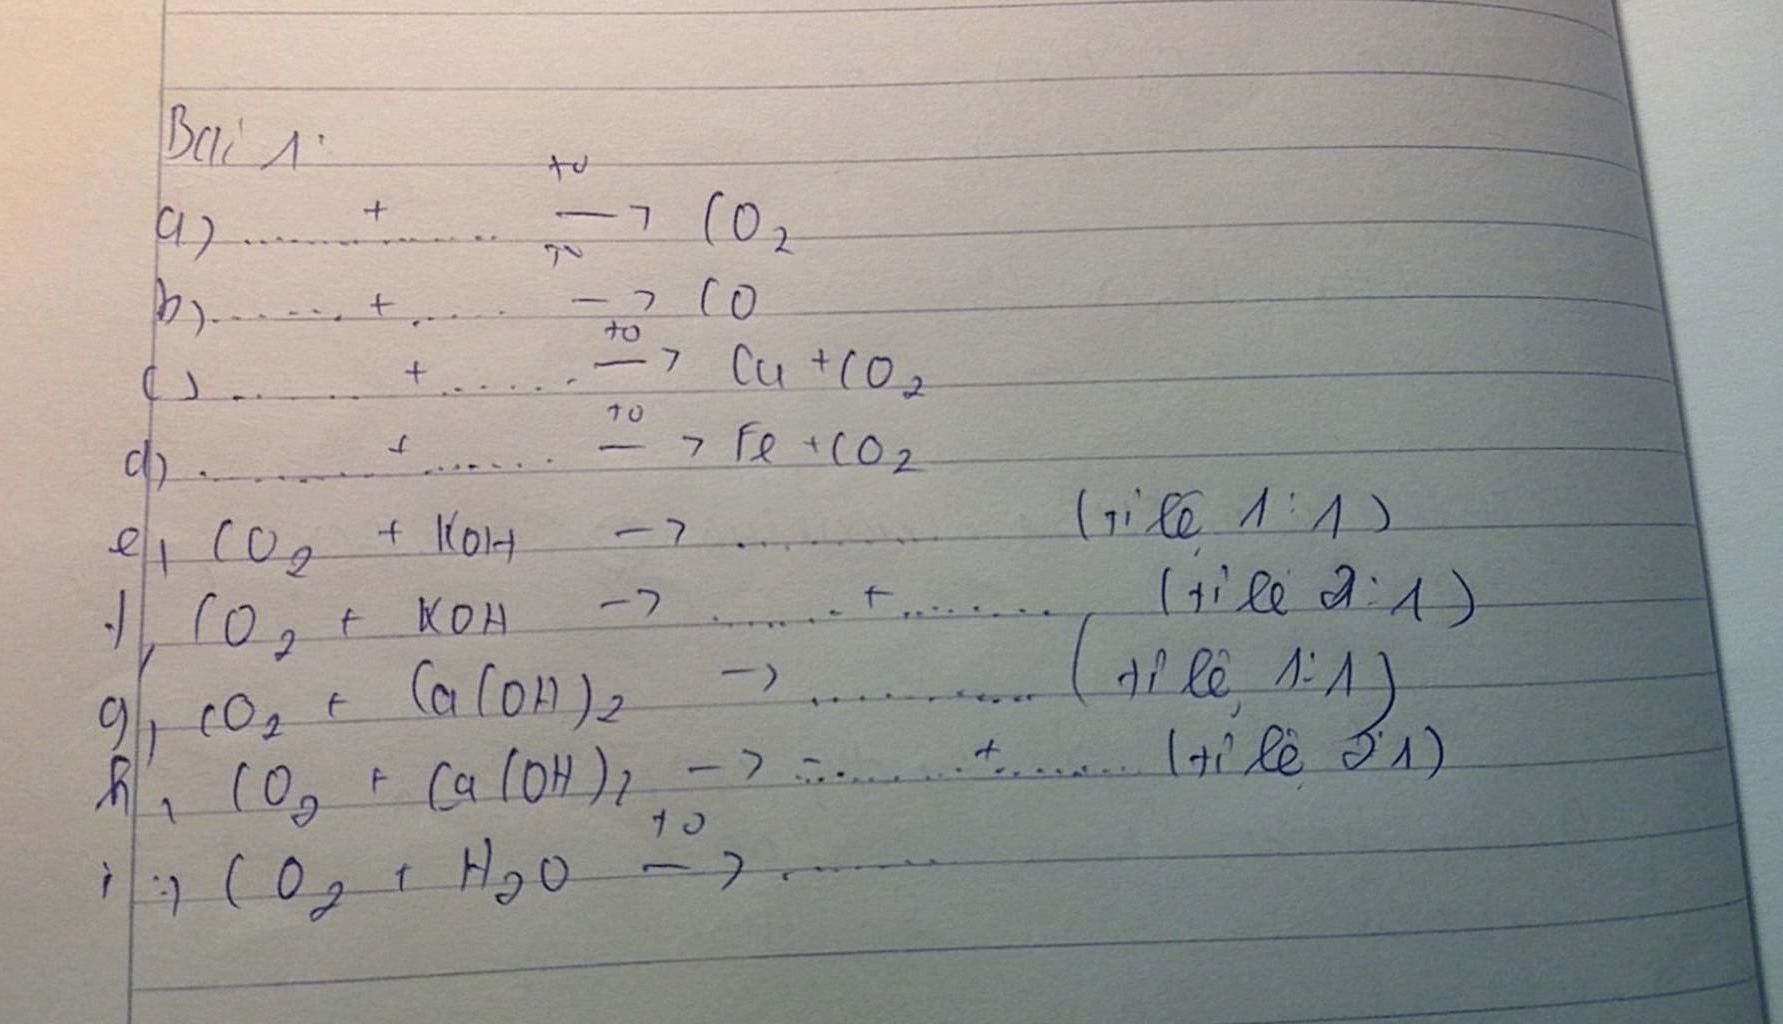 Bài 1:
a) ............ + ............ t° → CO2
b) ....... + ...... t° → CO
c) ............ + ....... t° → Cu + CO2
d) ............ + ....... t° → Fe + CO2
e, CO2 + KOH → ............ (tỉ lệ 1:1)
f, CO2 + KOH → ....... + ....... (tỉ lệ 2:1)
g, CO2 + Ca(OH)2 → ............ (tỉ lệ 1:1)
h, CO2 + Ca(OH)2 → ....... + ....... (tỉ lệ 2:1)
i, CO2 + H2O t° → .......